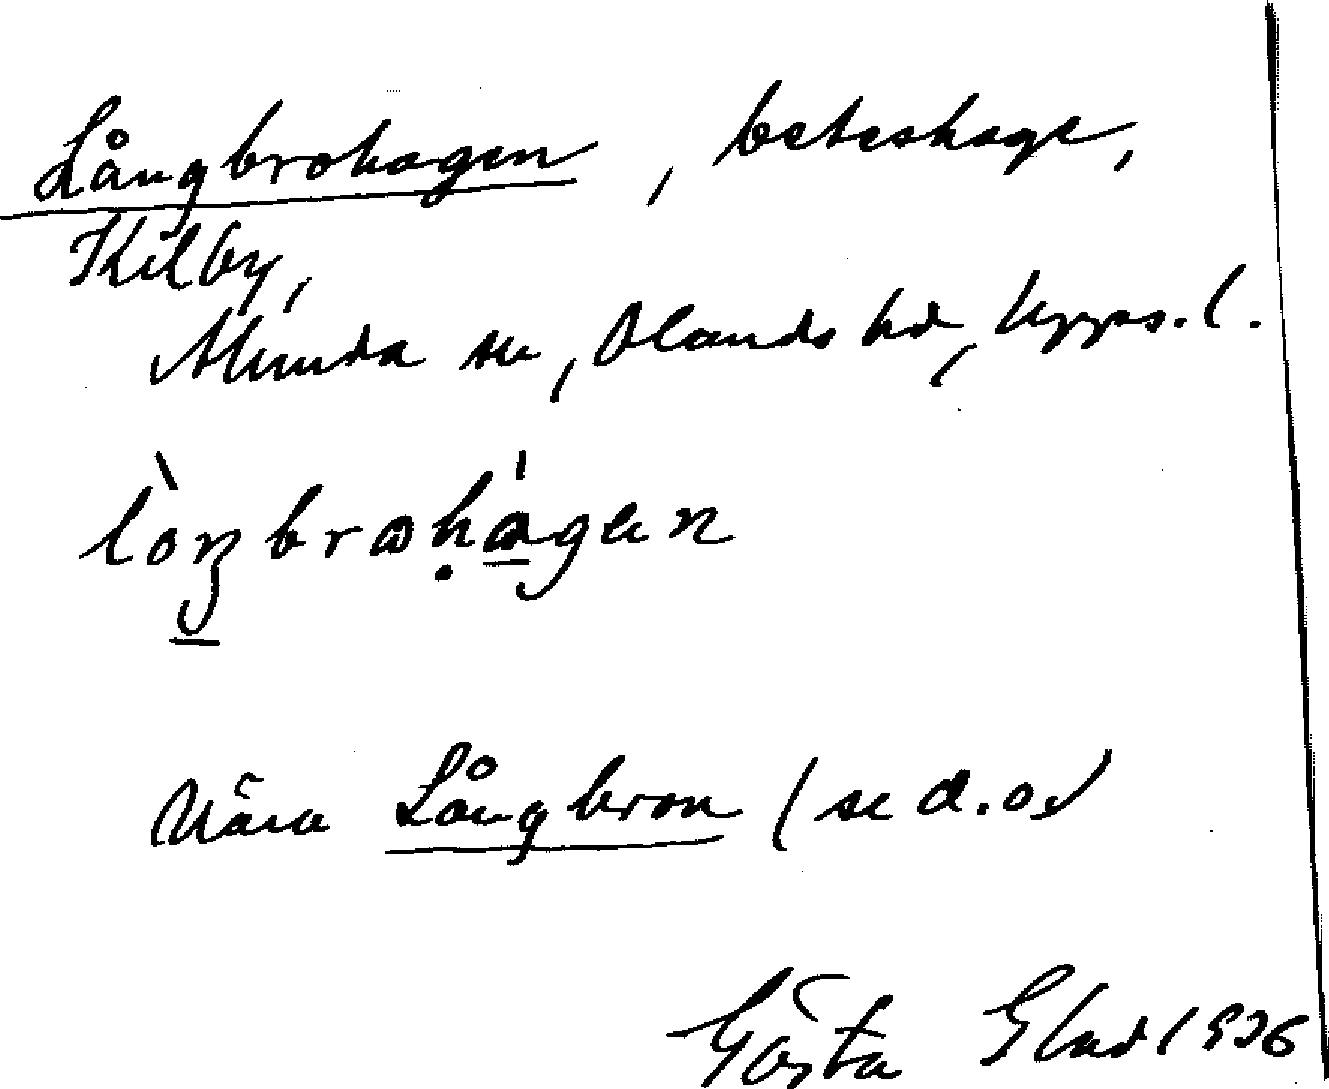 Långbrohagen, beteshage,
Kilby,
Alunda sn, Olands hd, Upps. l.
lòŋbrωhágen
Nära Långbron (se d.o.)
Gösta Glad 1936